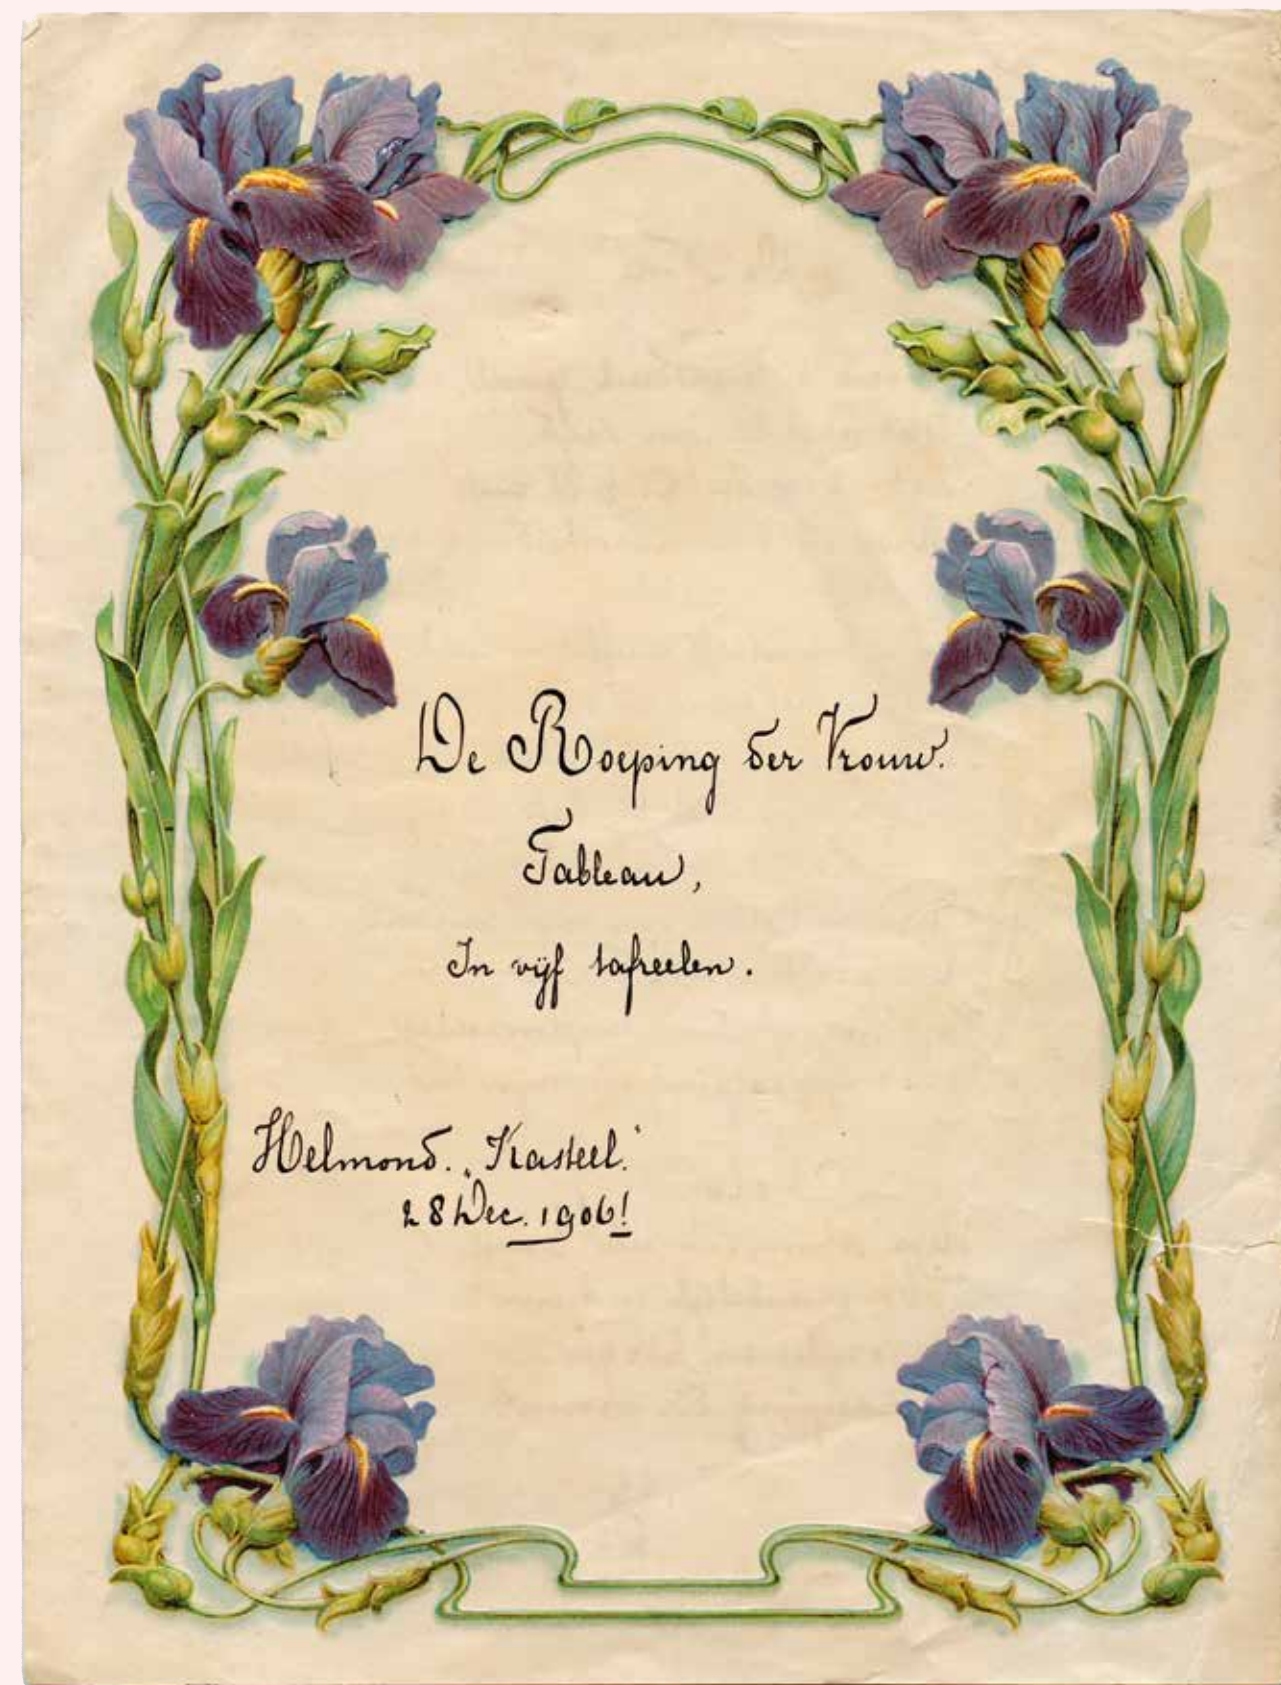 De Roeping der Vrouw.
Tableau,
In vijf tafreelen.
Helmond. „Kasteel.”
28 Dec. 1906!